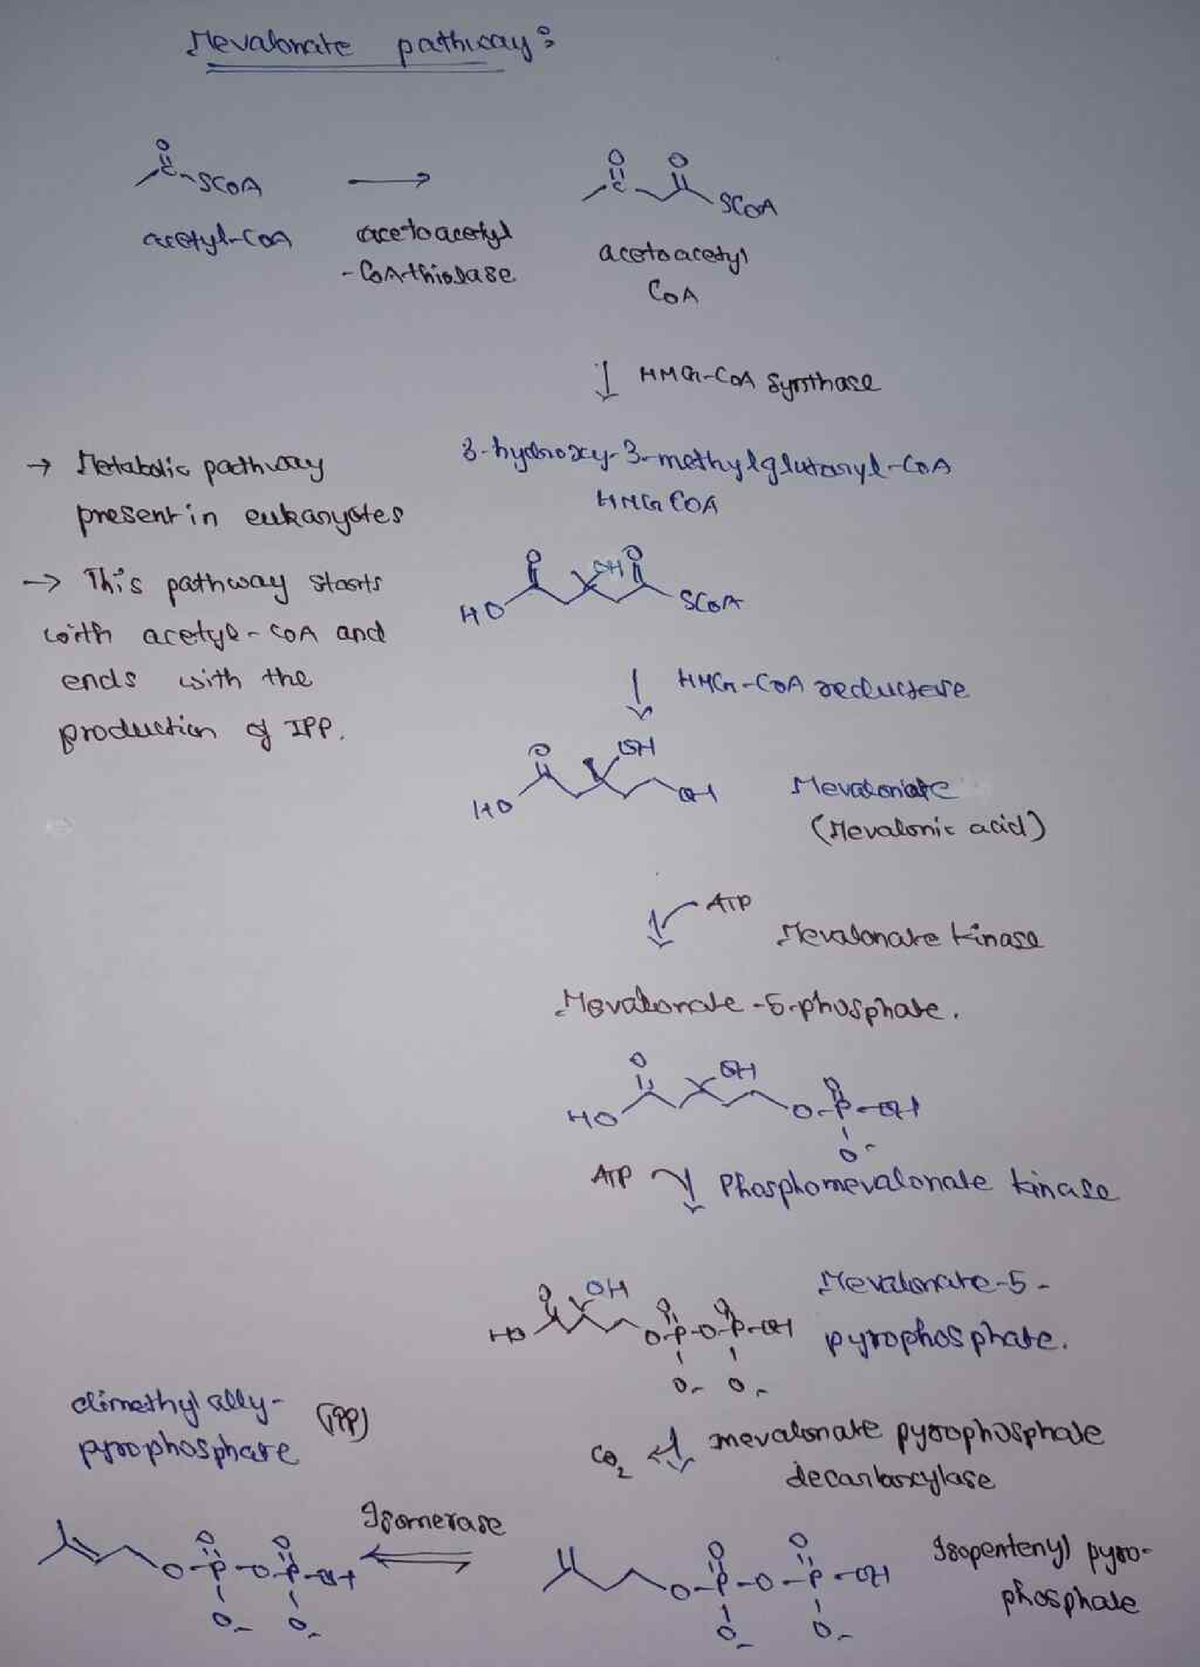 Mevalonate pathway:
O
C SCOA
acetyl-CoA
acetoacetyl
-CoA thiolase
O O
C SCoA
acetoacetyl
CoA
HMG-CoA Synthase
3-hydroxy-3-methylglutaryl-CoA
HMG COA
→ Metabolic pathway
present in eukaryotes
→ This pathway starts
with acetyl-COA and
ends with the
production of IPP.
O OH O
HO SCoA
HMG-CoA reductase
O OH
HO OH
Mevalonate
(Mevalonic acid)
ATP
Mevalonate Kinase
Mevalonate-5-phosphate.
O OH O
HO O-P-OH
O-
ATP Phosphomevalonate kinase
O OH O O
HO O-P-O-P-OH
O- O-
Mevalonate-5-
pyrophosphate.
CO2 mevalonate pyrophosphate
decarboxylase
dimethyl ally-
pyrophosphate (IPP)
Isomerase
O O
O-P-O-P-OH
O- O-
O O
O-P-O-P-OH
O- O-
Isopentenyl pyro-
phosphate